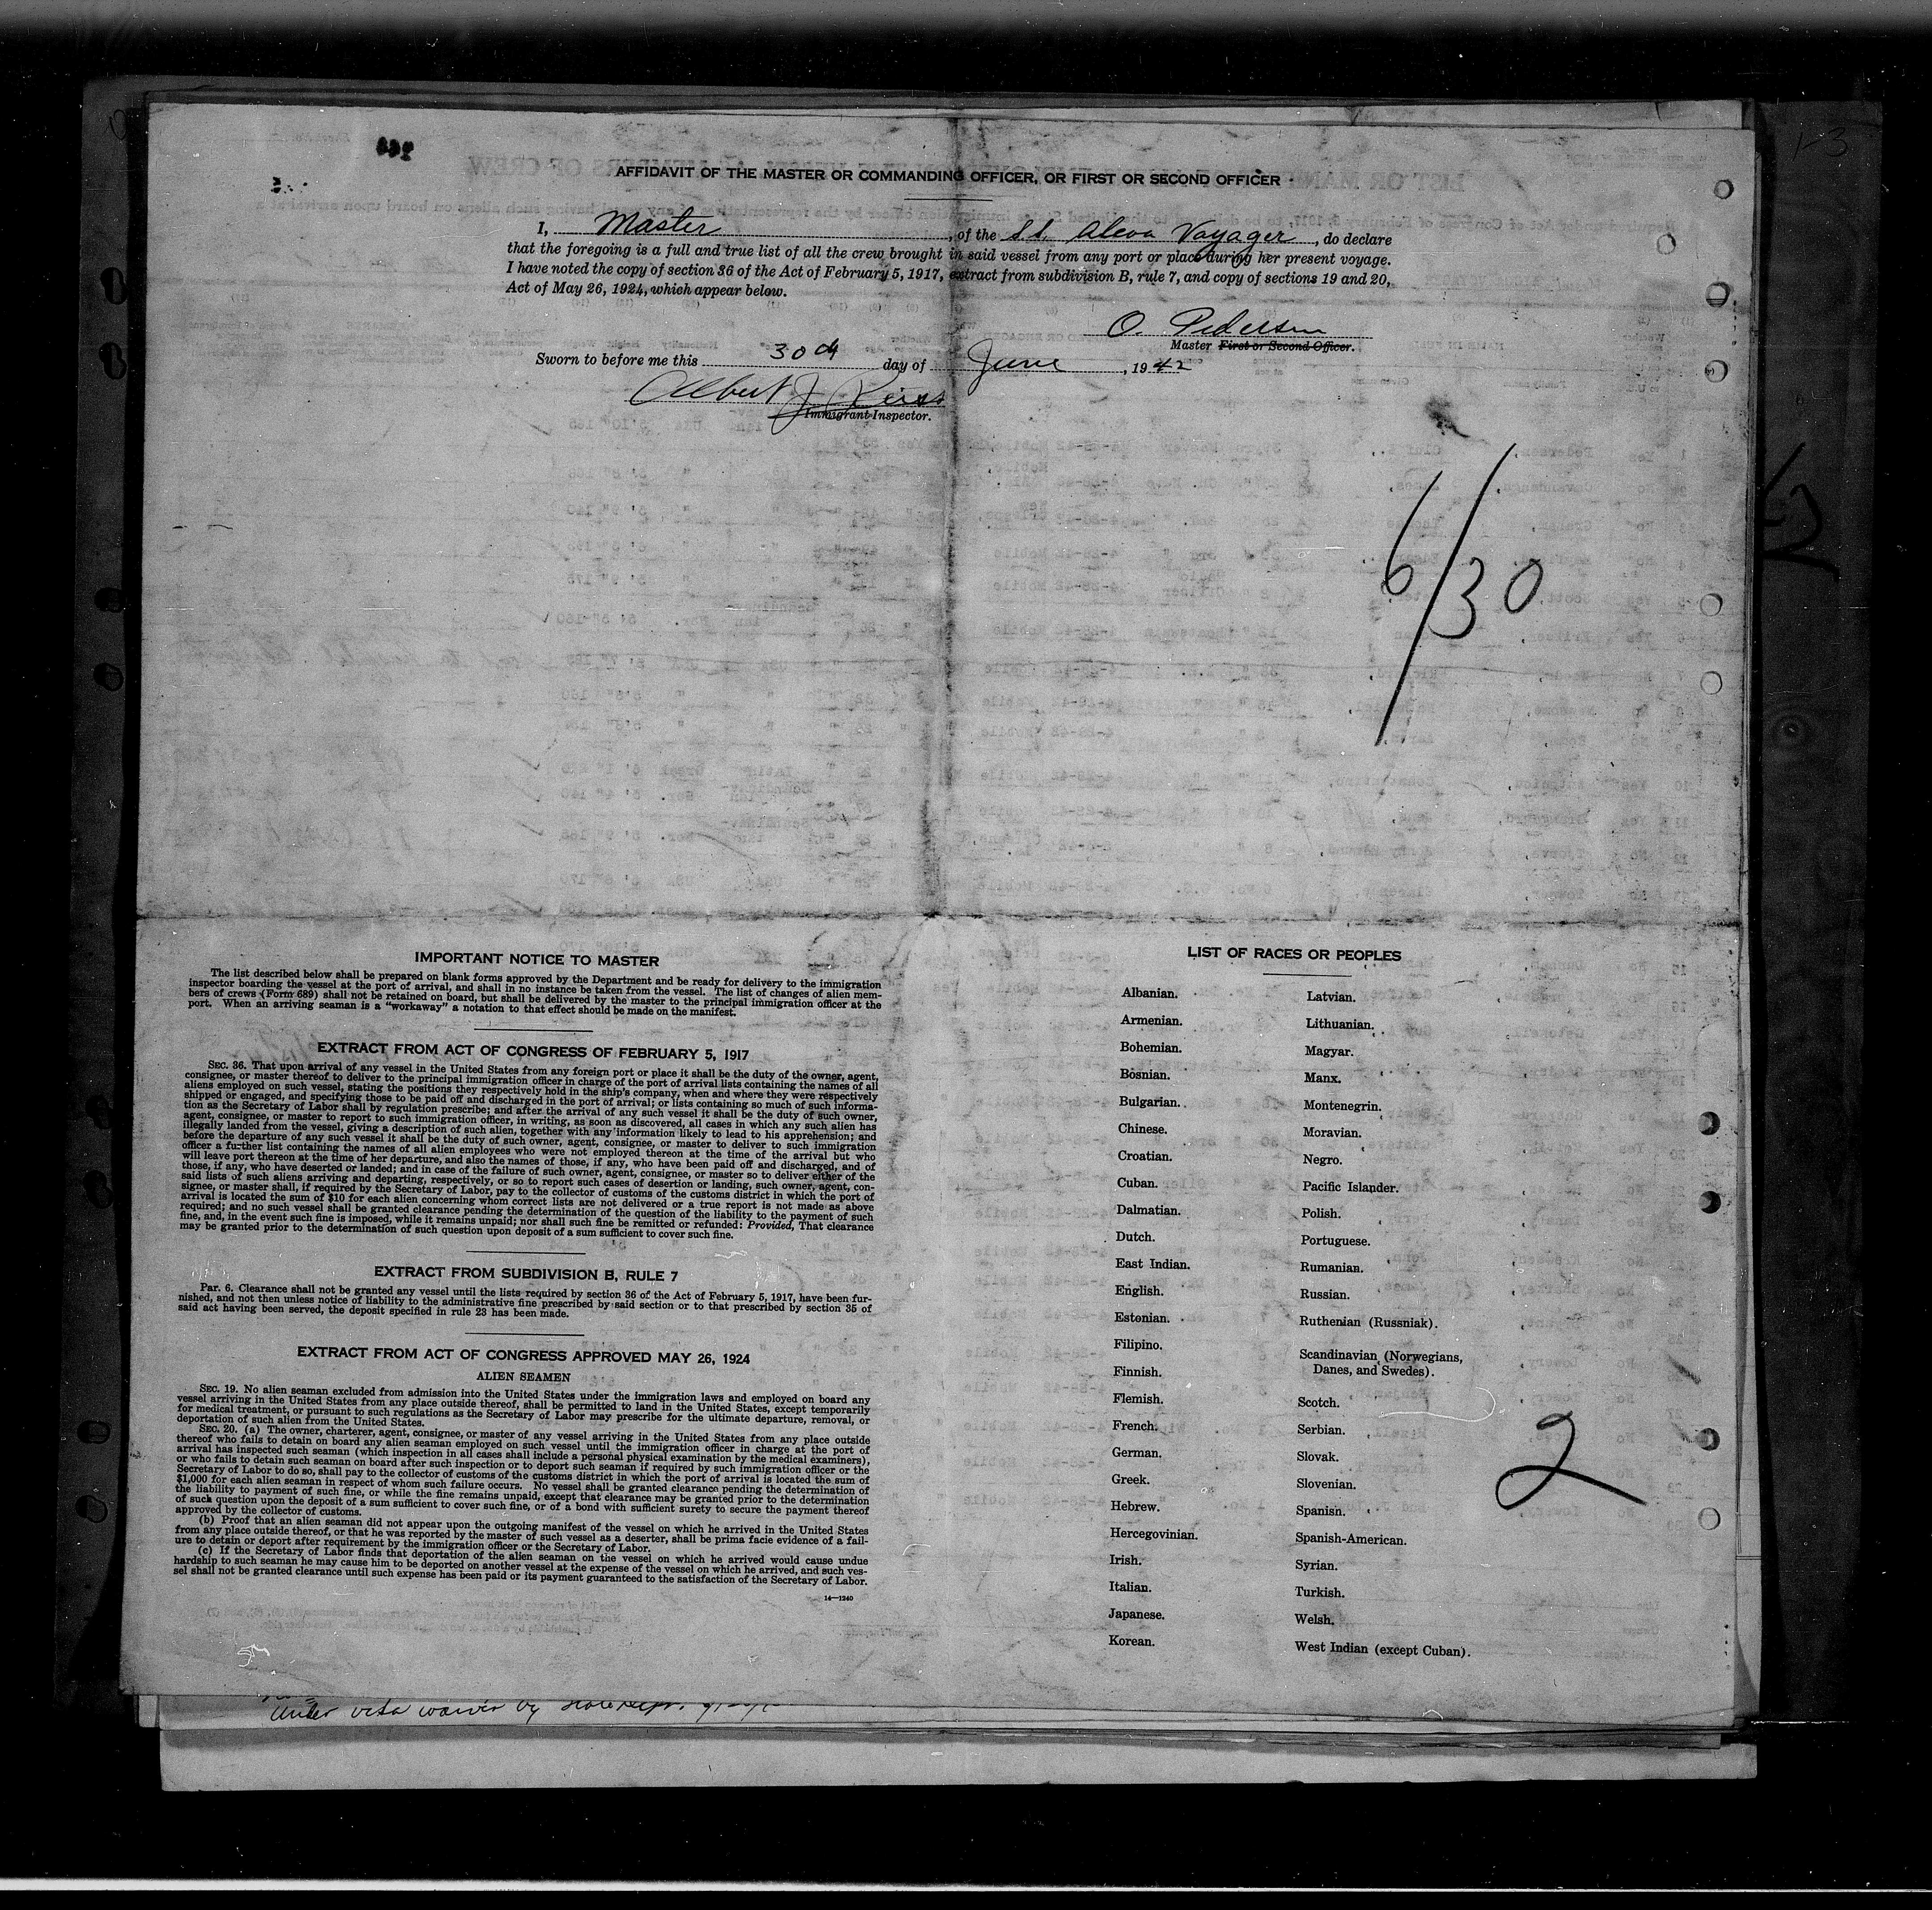 AFFIDAVIT OF THE MASTER OR COMMANDING OFFICER, OR FIRST OR SECOND OFFICER
I, Master, of the S.S. Alcoa Voyager, do declare
that the foregoing is a full and true list of all the crew brought in said vessel from any port or place during her present voyage.
I have noted the copy of section 36 of the Act of February 5, 1917, extract from subdivision B, rule 7, and copy of sections 19 and 20,
Act of May 26, 1924, which appear below.
O. Pedersen
Master First or Second Officer.
Sworn to before me this 30th day of June, 1942
Albert J.
Immigrant Inspector.
6/30
IMPORTANT NOTICE TO MASTER
The list described below shall be prepared on blank forms approved by the Department and be ready for delivery to the immigration
inspector boarding the vessel at the port of arrival, and shall in no instance be taken from the vessel. The list of changes of alien mem-
bers of crews (Form 689) shall not be retained on board, but shall be delivered by the master to the principal immigration officer at the
port. When an arriving seaman is a “workaway” a notation to that effect should be made on the manifest.
EXTRACT FROM ACT OF CONGRESS OF FEBRUARY 5, 1917
SEC. 36. That upon arrival of any vessel in the United States from any foreign port or place it shall be the duty of the owner, agent,
consignee, or master thereof to deliver to the principal immigration officer in charge of the port of arrival lists containing the names of all
aliens employed on such vessel, stating the positions they respectively hold in the ship's company, when and where they were respectively
shipped or engaged, and specifying those to be paid off and discharged in the port of arrival; or lists containing so much of such informa-
tion as the Secretary of Labor shall by regulation prescribe; and after the arrival of any such vessel it shall be the duty of such owner,
agent, consignee, or master to report to such immigration officer, in writing, as soon as discovered, all cases in which any such alien has
illegally landed from the vessel, giving a description of such alien, together with any information likely to lead to his apprehension; and
before the departure of any such vessel it shall be the duty of such owner, agent, consignee, or master to deliver to such immigration
officer a further list containing the names of all alien employees who were not employed thereon at the time of the arrival but who
will leave port thereon at the time of her departure, and also the names of those, if any, who have been paid off and discharged, and of
those, if any, who have deserted or landed; and in case of the failure of such owner, agent, consignee, or master so to deliver either of the
said lists of such aliens arriving and departing, respectively, or so to report such cases of desertion or landing, such owner, agent, con-
signee, or master shall, if required by the Secretary of Labor, pay to the collector of customs of the customs district in which the port of
arrival is located the sum of $10 for each alien concerning whom correct lists are not delivered or a true report is not made as above
required; and no such vessel shall be granted clearance pending the determination of the question of the liability to the payment of such
fine, and, in the event such fine is imposed, while it remains unpaid; nor shall such fine be remitted or refunded: Provided, That clearance
may be granted prior to the determination of such question upon deposit of a sum sufficient to cover such fine.
EXTRACT FROM SUBDIVISION B, RULE 7
Par. 6. Clearance shall not be granted any vessel until the lists required by section 36 of the Act of February 5, 1917, have been fur-
nished, and not then unless notice of liability to the administrative fine prescribed by said section or to that prescribed by section 35 of
said act having been served, the deposit specified in rule 23 has been made.
EXTRACT FROM ACT OF CONGRESS APPROVED MAY 26, 1924
ALIEN SEAMEN
SEC. 19. No alien seaman excluded from admission into the United States under the immigration laws and employed on board any
vessel arriving in the United States from any place outside thereof, shall be permitted to land in the United States, except temporarily
for medical treatment, or pursuant to such regulations as the Secretary of Labor may prescribe for the ultimate departure, removal, or
deportation of such alien from the United States.
SEC. 20. (a) The owner, charterer, agent, consignee, or master of any vessel arriving in the United States from any place outside
thereof who fails to detain on board any alien seaman employed on such vessel until the immigration officer in charge at the port of
arrival has inspected such seaman (which inspection in all cases shall include a personal physical examination by the medical examiners),
or who fails to detain such seaman on board after such inspection or to deport such seaman if required by such immigration officer or the
Secretary of Labor to do so, shall pay to the collector of customs of the customs district in which the port of arrival is located the sum of
$1,000 for each alien seaman in respect of whom such failure occurs. No vessel shall be granted clearance pending the determination of
the liability to payment of such fine, or while the fine remains unpaid, except that clearance may be granted prior to the determination
of such question upon the deposit of a sum sufficient to cover such fine, or of a bond with sufficient surety to secure the payment thereof
approved by the collector of customs.
(b) Proof that an alien seaman did not appear upon the outgoing manifest of the vessel on which he arrived in the United States
from any place outside thereof, or that he was reported by the master of such vessel as a deserter, shall be prima facie evidence of a fail-
ure to detain or deport after requirement by the immigration officer or the Secretary of Labor.
(c) If the Secretary of Labor finds that deportation of the alien seaman on the vessel on which he arrived would cause undue
hardship to such seaman he may cause him to be deported on another vessel at the expense of the vessel on which he arrived, and such ves-
sel shall not be granted clearance until such expense has been paid or its payment guaranteed to the satisfaction of the Secretary of Labor.
14—1240
LIST OF RACES OR PEOPLES
Albanian.
Armenian.
Bohemian.
Bosnian.
Bulgarian.
Chinese.
Croatian.
Cuban.
Dalmatian.
Dutch.
East Indian.
English.
Estonian.
Filipino.
Finnish.
Flemish.
French.
German.
Greek.
Hebrew.
Hercegovinian.
Irish.
Italian.
Japanese.
Korean.
Latvian.
Lithuanian.
Magyar.
Manx.
Montenegrin.
Moravian.
Negro.
Pacific Islander.
Polish.
Portuguese.
Rumanian.
Russian.
Ruthenian (Russniak).
Scandinavian (Norwegians,
Danes, and Swedes).
Scotch.
Serbian.
Slovak.
Slovenian.
Spanish.
Spanish-American.
Syrian.
Turkish.
Welsh.
West Indian (except Cuban).
2
under visa waiver by State Dept.